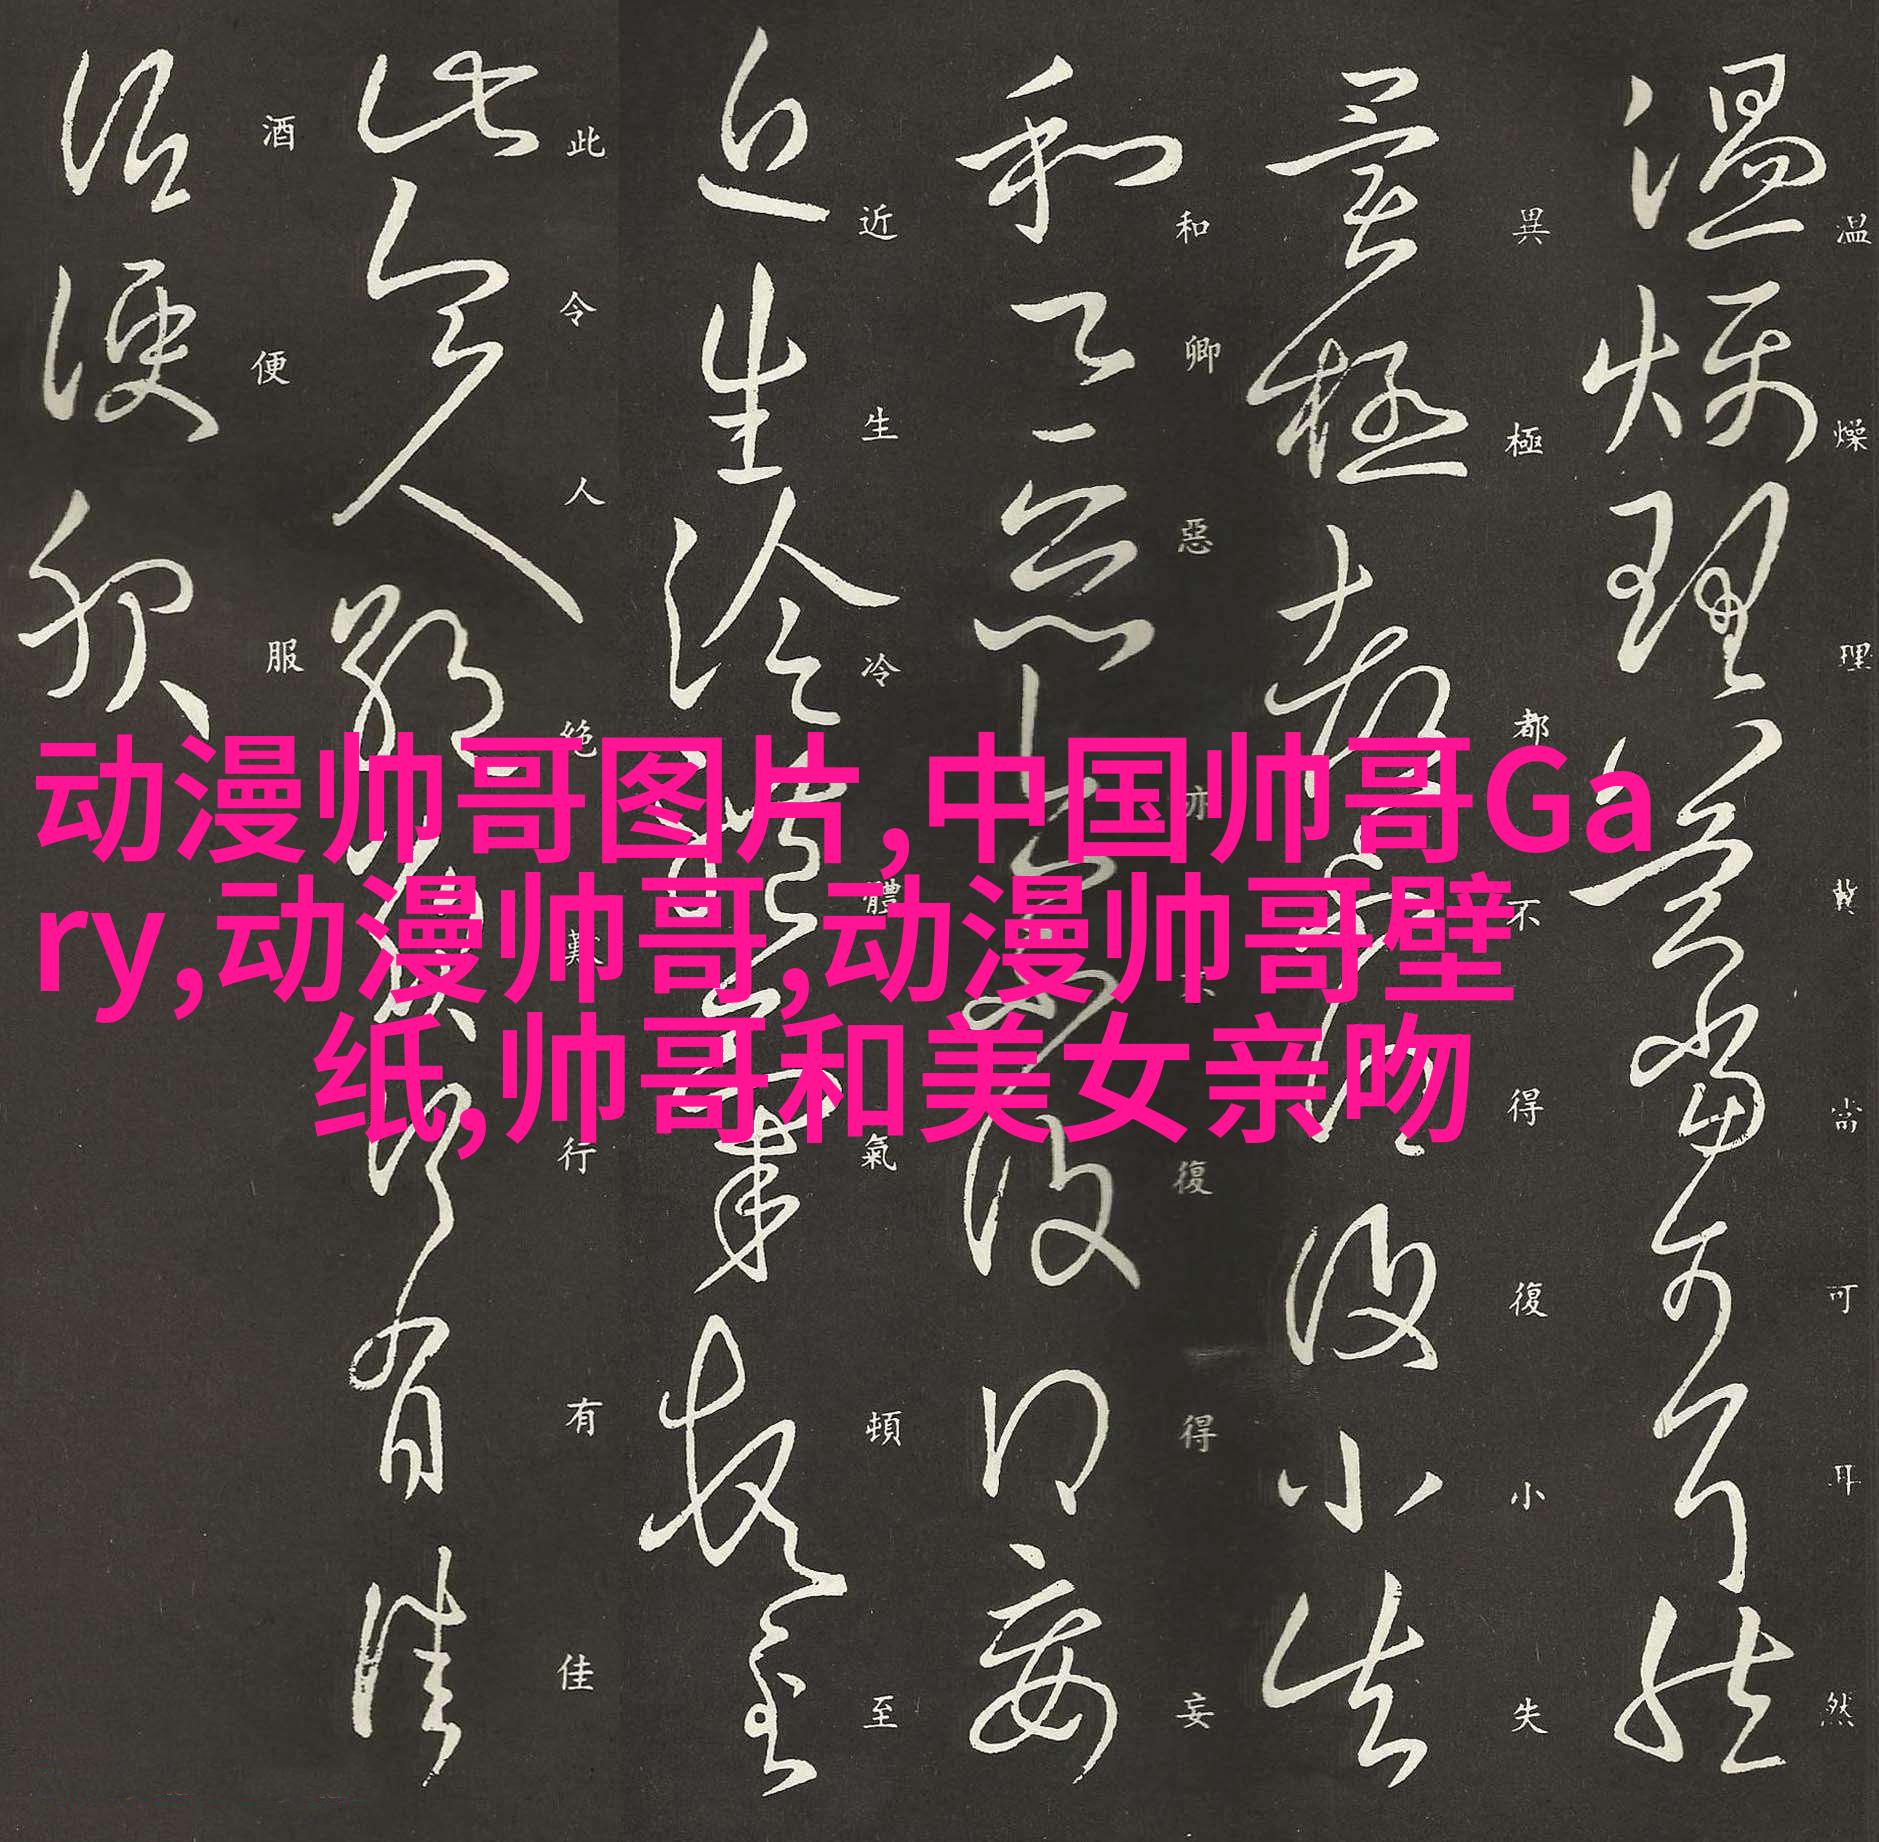 动漫帅哥图片,中国帅哥Ga
ry,动漫帅哥,动漫帅哥壁
纸,帅哥和美女亲吻
温燥理冀當可耳然
異極都不得復小失
和卿惡亦不復得妄
近生冷體氣頓至
此令人絶難行有佳
酒便服